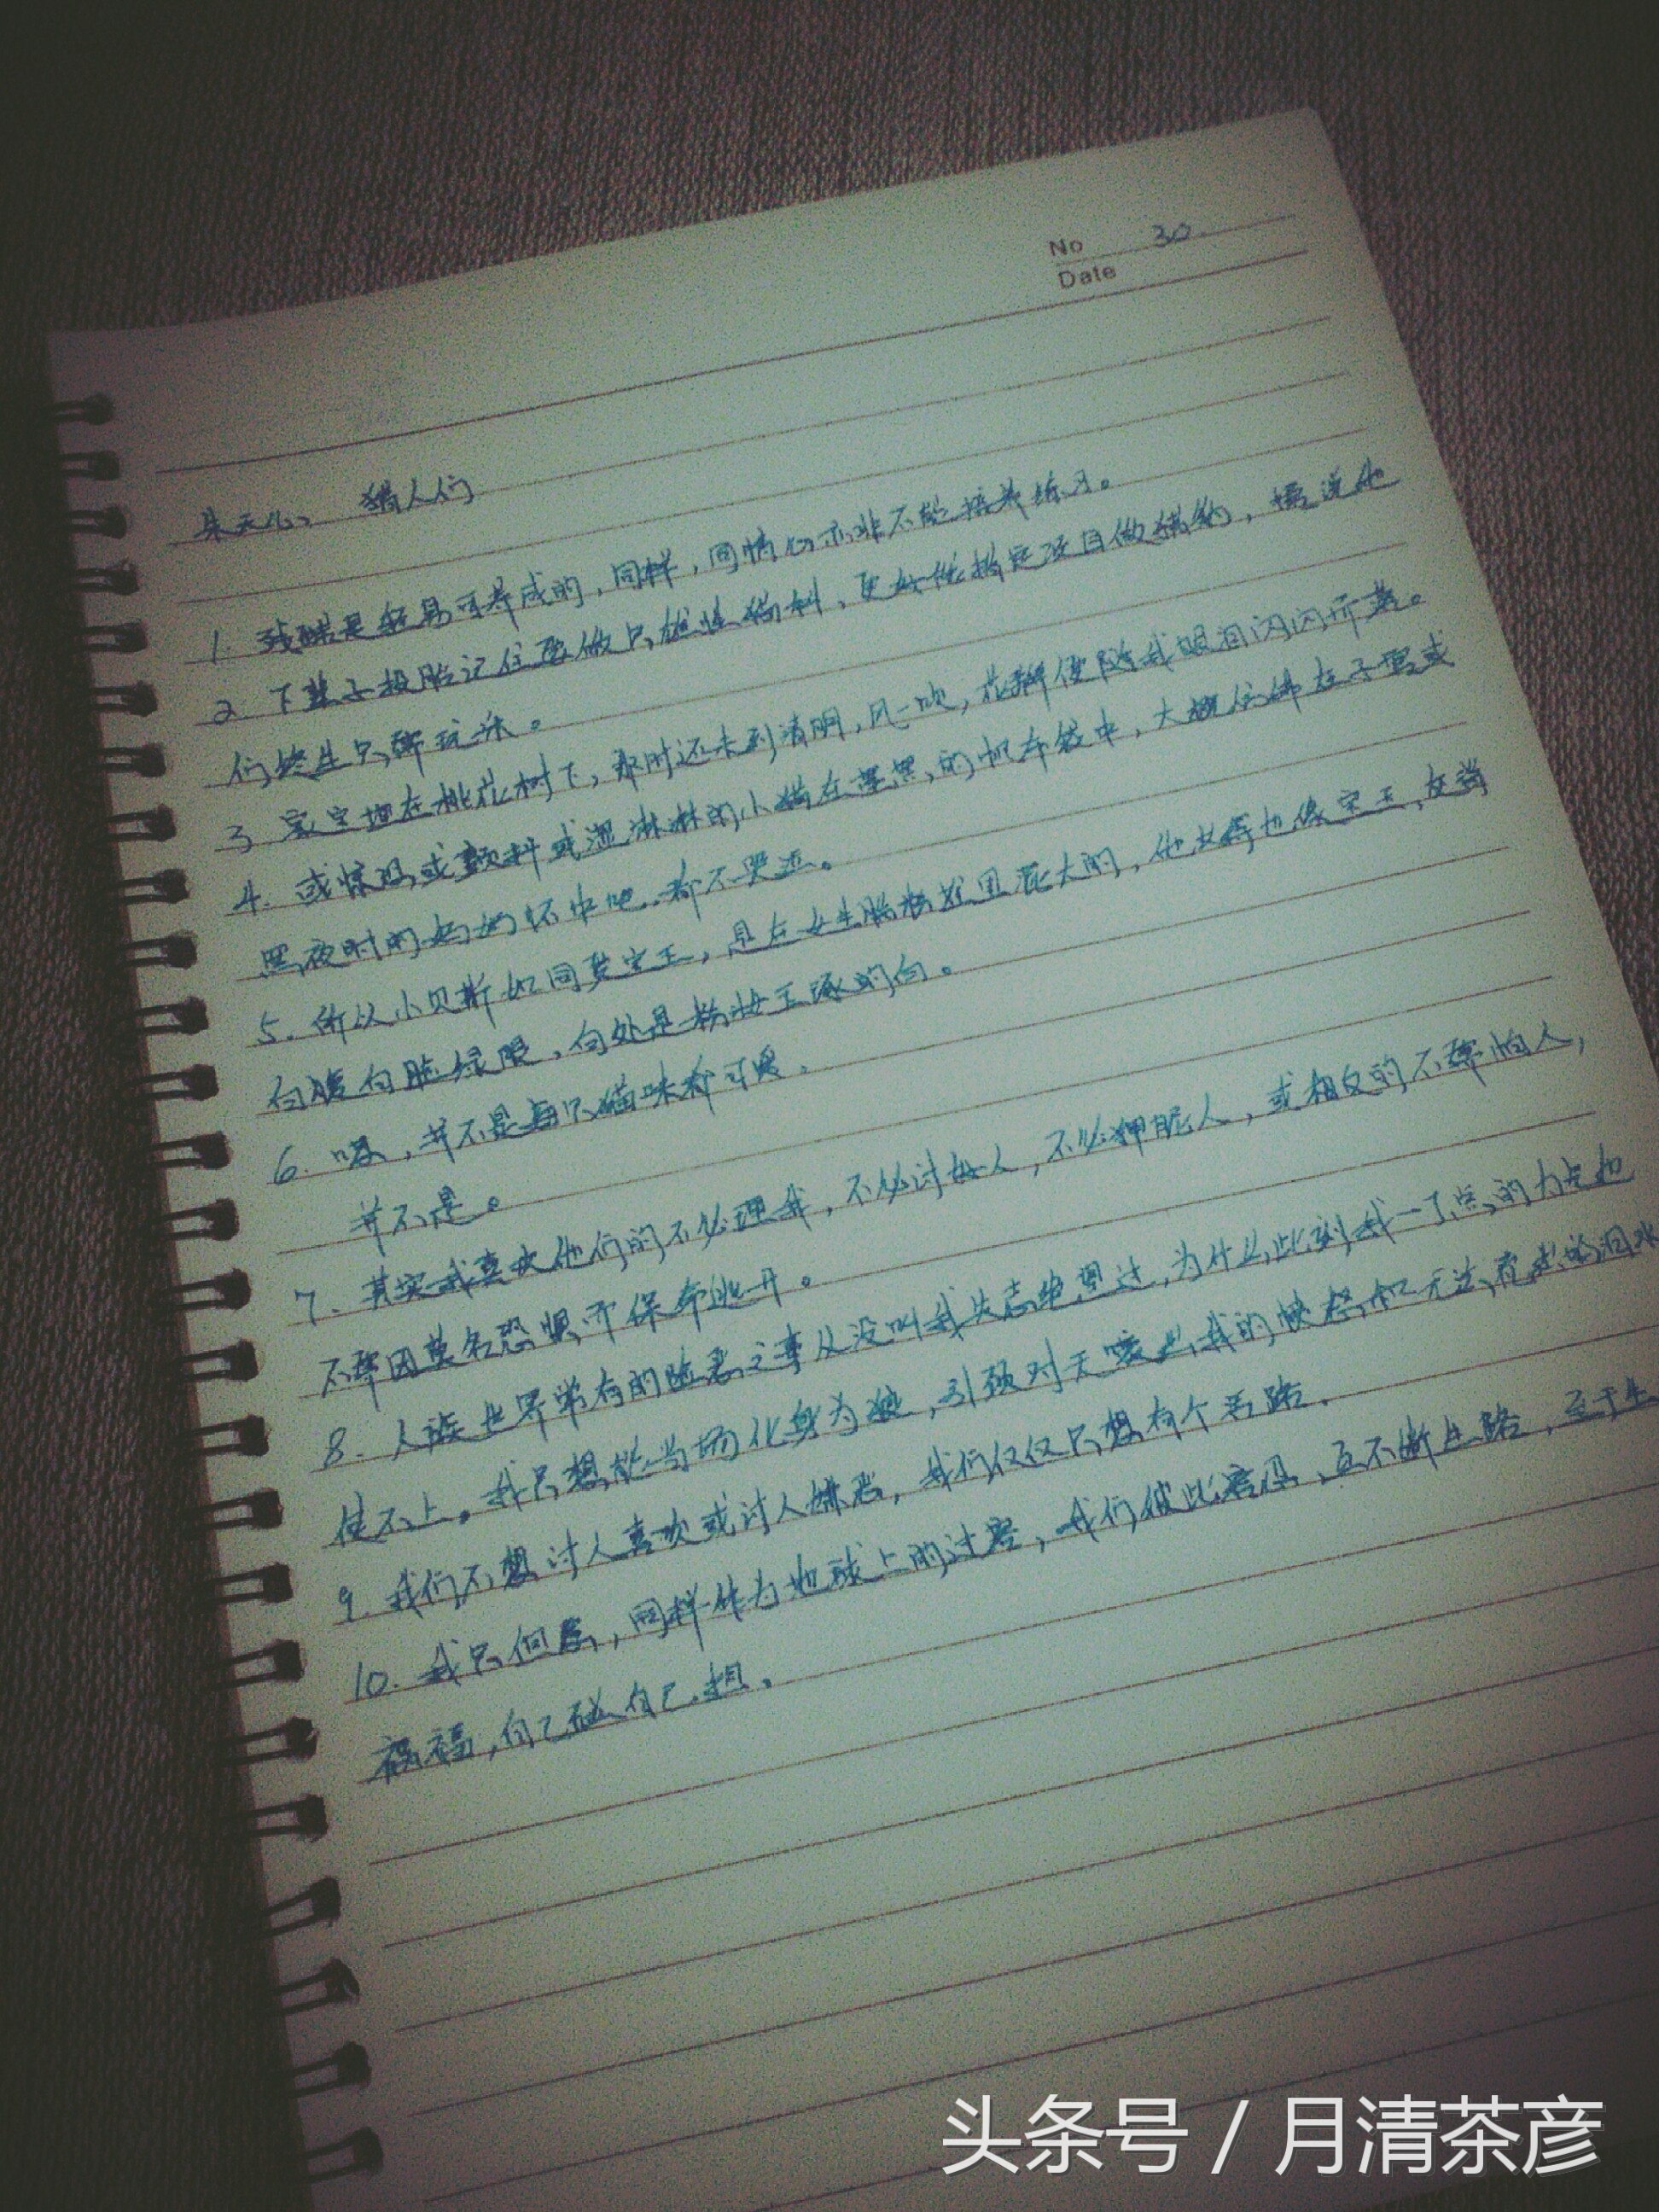 No 30.
Date
朱天心、 猎人们
1. 残酷是轻易可养成的，同样，同情心亦非不能培养练习。
2. 下辈子投胎记住要做只雄性猫科，更好能指定项目做猎豹，据说他
们终生只需玩乐。
3 家宝埋在桃花树下，那时还未到清明，风一吹，花瓣便随我眼泪闪闪而落。
4. 或惊吓或颤抖或湿淋淋的小猫在黑黑的帆布袋中，大概仿佛在子宫或
黑夜时的妈妈怀中吧，都不哭泣。
5. 所以小贝斯如同贾宝玉，是在女生脂粉花团 大的，他长得也像宝玉，灰背
白腹白脸绿眼，白处是粉妆玉琢的白。
6. 唉，并不是每只猫咪都可爱。
并不是。
7. 其实我喜欢他们的不必理我，不必讨好人，不必狎昵人，或相反的不需怕人，
不需因莫名恐惧而保命逃开。
8. 人族世界常有的险恶之事从没叫我失志绝望过，为什么此刻我一丁点的力气也
使不上。我只想能当场化身为狼，引颈对天嗥出我的愤怒和无法 的泪水
9. 我们不想讨人喜欢或讨人嫌恶，我们仅仅只想有个活路。
10. 我只但愿，同样作为地球上的过客，我们彼此容忍，互不断生路，至于生
祸福，自己碰自己担。
头条号 / 月清茶彦